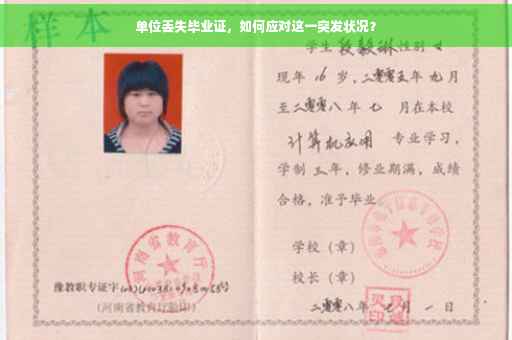 单位丢失毕业证，如何应对这一突发状况？
样本
学生 段毅琳 性别 女
现年 16 岁，二零零五年 九 月
至二零零八年 七 月在本校
计算机应用 专业学习，
学制 三 年，修业期满，成绩
合格，准予毕业。
学校（章）
校长（章）
二零零八年 月 一 日
河南省教育厅
豫教职专证字
（河南省教育厅验印）